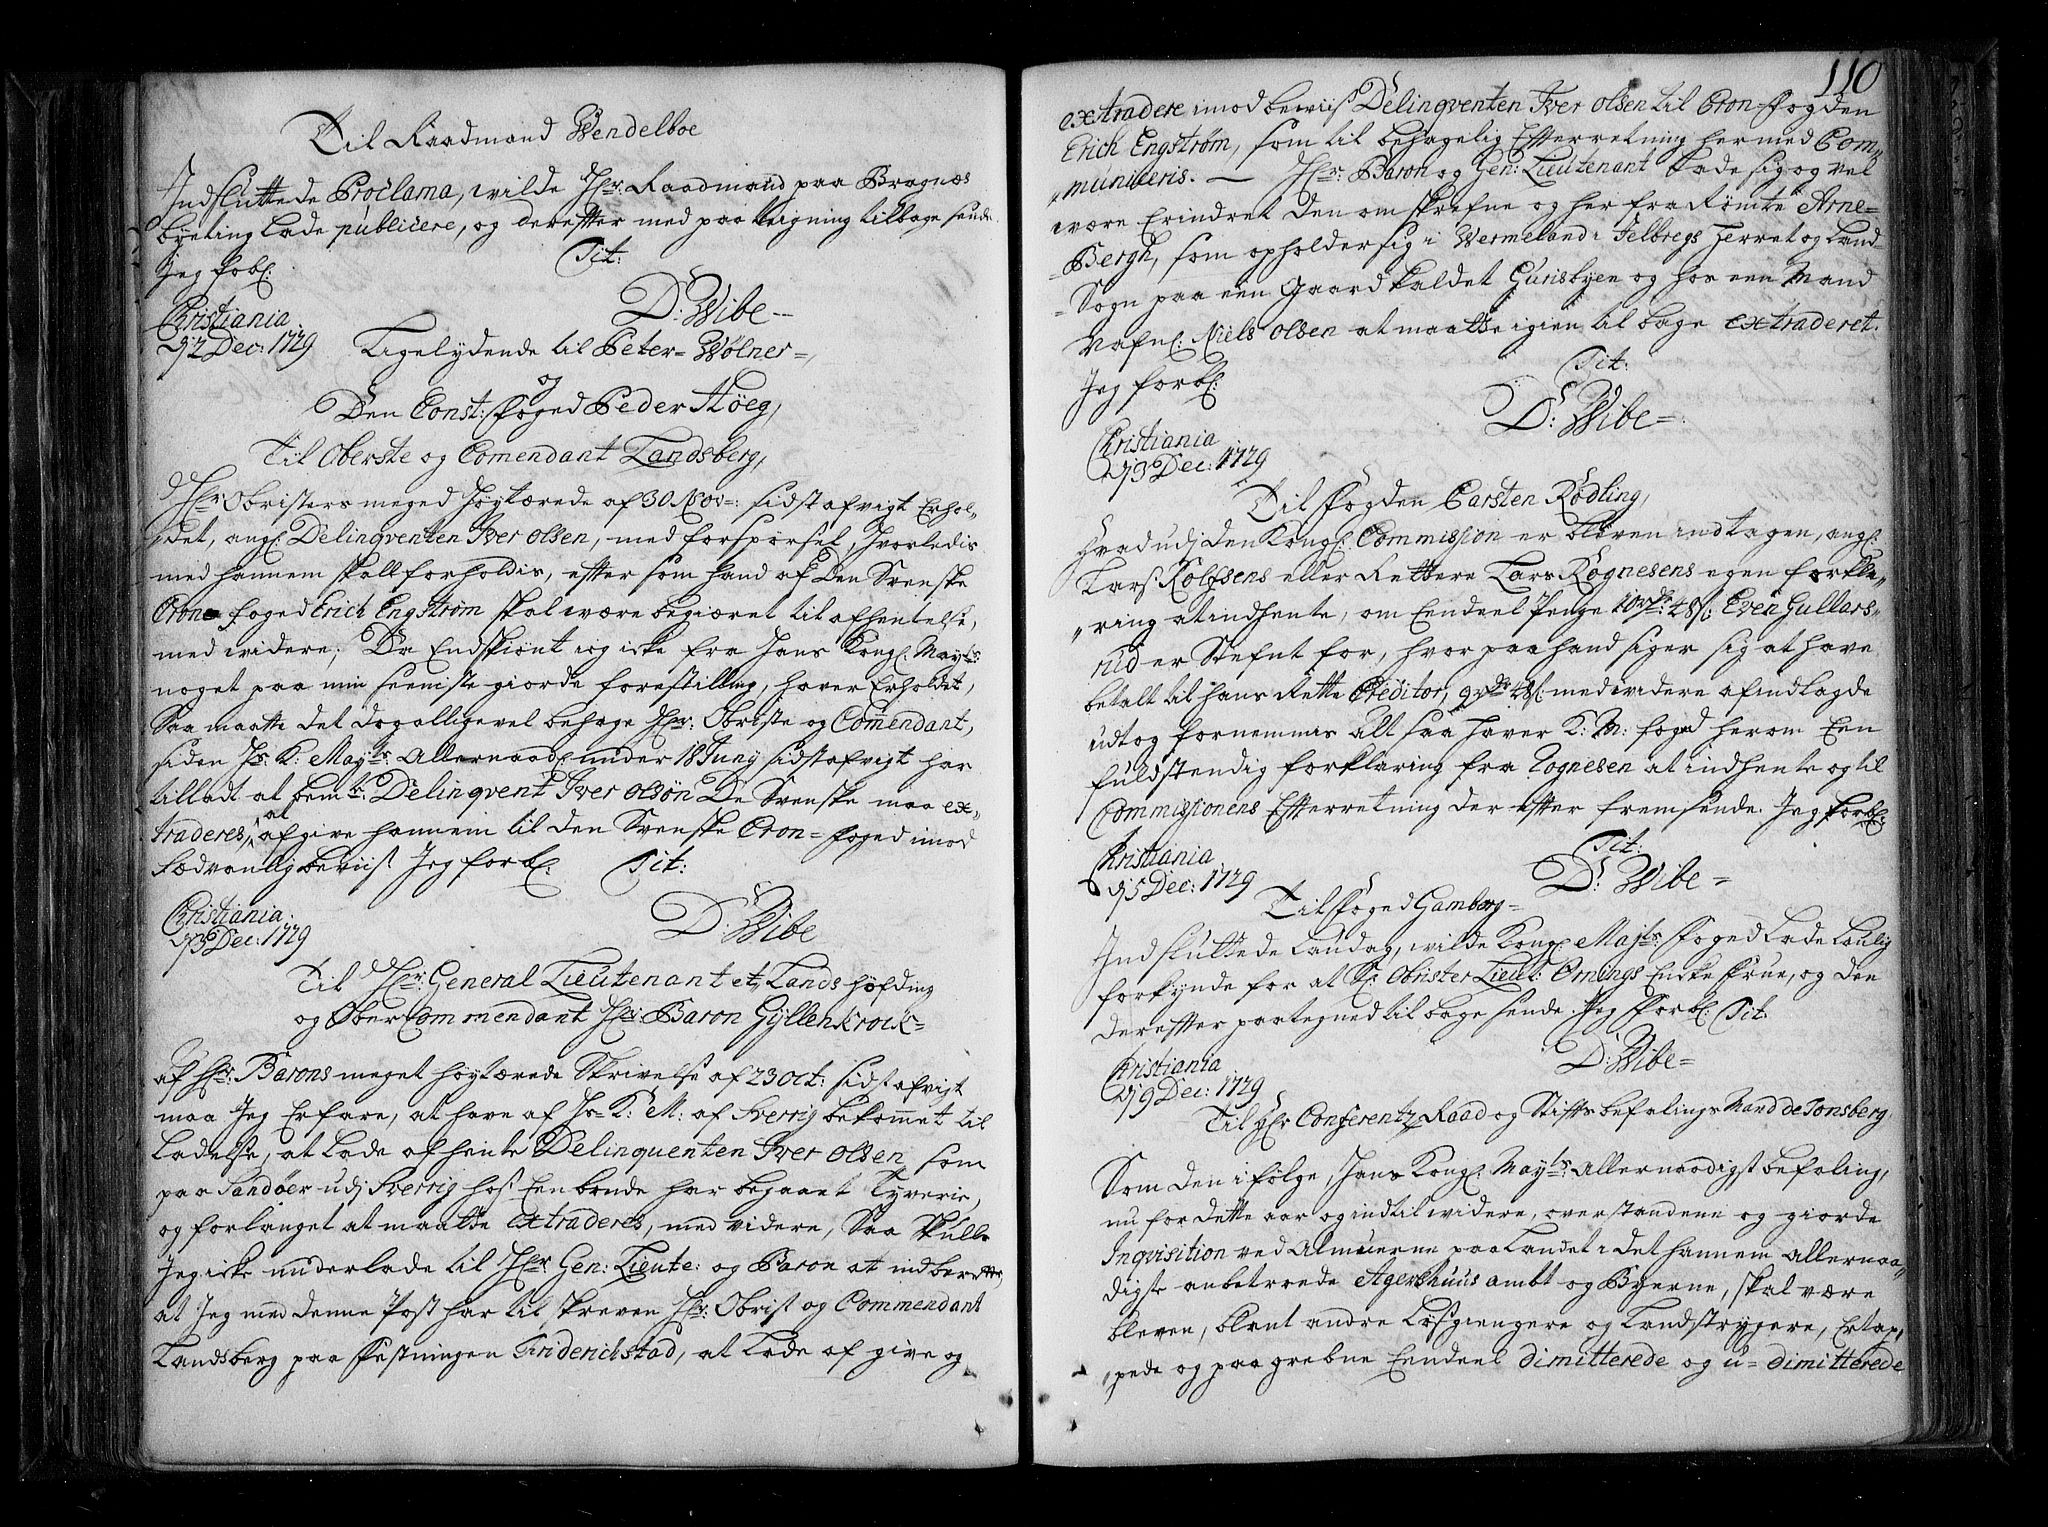 Til Raadmand Wendelboe
Indsluttede Proclama, wilde Hr: Raadmand paa Bragnæs
bÿeting lade publicere, og derefter med paategning tilbage sende.
Jeg forbl: Tit:
D: Wibe
Christiania
d 2 Dec: 1729
Ligelydende til Peter Wølner
og
Den Const: foged Peder Høeg,
Til Oberste og Comendant Landsberg,
Hr: Obristers meged Høytærede af 30 Nov: sidst afvigt Erhol-
det, angl: Delinqventen Iver Olsen, med forspørsel, hvorledis
med hannem skall forholdis, efter som hand af Den Svenske
Cron foged Erich Engstrøm skal være begiæret til afhentelse,
med widere; Da Endskiønt ieg icke fra Hans Kongl: Mayts:
noget paa min seeniste giorde forestilling, haver Erholdet,
Saa maatte det dog alligevel behage Hr: Obriste og Comendant,
siden Hs: K: Mayts: Allernaadl: under 18 Juny sidst afvigt har
tilladt at bemte: Delinqvent Iver Olsøn De Svenske maa ex-
traderes, at afgive hannem til den Svenske Cron-foged imod
sædvanlig beviis. Jeg forbl: Tit:
D: Wibe
Christiania
d 3 Dec: 1729
Til Hr: General Lieutenant et Lands høfding
og Ober Commendant Hr: Baron Gÿllenkrock
af Hr: Barons meget høytærede Skrivelse af 23 Oct: sidst afvigt
maa Jeg Erfare, at have af Hs K: M: af Sverrig bekommet til
ladelse, at lade afhente Delinquenten Iver Olsen, som
paa Sandøer udj Sverrig hos Een bonde har begaaet Tyverie,
og forlanget at maatte extraderes, med videre, Saa skulle
Jeg icke underlade til Hr: Gen: Lieute: og Baron at indberette,
at Jeg med denne Post har til skreven Hr: Obrist og Commendant
Landsberg paa Festningen Friderichstad, at lade af give og
110
extradere imod beviis Delinqventen Iver Olsen til Cron-fogden
Erich Engstrøm, som til behagelig Efterretning hermed Com-
municeris. — Hr: Baron og Gen: Lieutenant Lade sig og vel
være Erindret den omskrefne og her fra Rømte Arne
Bergh, som opholder sig i Wermeland i Jelbregs Herret og Land-
Sogn paa een Gaard kaldet Gunisbyen og hos een Mand
Nafnl: Niels Olsen at maatte igien til bage extraderet.
Jeg forbl: Tit:
D: Wibe
Christiania
d 3 Dec: 1729
Til Fogden Carsten Rødling,
Hvad udj den Kongl: Commission er bleven indtagen, angl:
Lars Rolfsens eller Rettere Lars Rognesens egen forkla-
ring at indhente, om Eendeel Penge 10 rdr: 48 s: Even Gullars-
rud er Stefnt for, hvor paa hand siger sig at have
betalt til hans Rette Creditor, 9 rdr 48 s: med widere af indlagde
udtog fornemmes alt saa haver K: M: foged herom Een
fuldstendig forklaring fra Rognesen at indhente og til
Commissionens Efterretning der efter fremsende. Jeg forbl:
Tit:
D: Wibe
Christiania
d 5 Dec: 1729
Til Foged Gamberg
Indsluttede Laudag, wilde Kongl: Majts: foged lade Lovlig
forkynde for al Sl: Obrister Lieut: Ornings Encke Frue, og den
derefter paategned til bage sende. Jeg forbl: Tit
D: Wibe
Christiania
d 9 Dec: 1729
Til Hr Conferentz Raad og Stiftsbefalings Mand de Tonsberg
Som den i følge, Hans Kongl: Mayts: Allernaadigst befaling,
nu for dette aar og indtil widere, overstandene og giorde
Inqvisition ved Almuerne paa Landet i det hannem allernaa-
digst anbetroede Agershuus ambt og Byerne, skal være
bleven, blant andre Løsgiengere og Landstrygere, Ertap-
pede og paagrebne Eendeel dimitterede og u-dimitterede